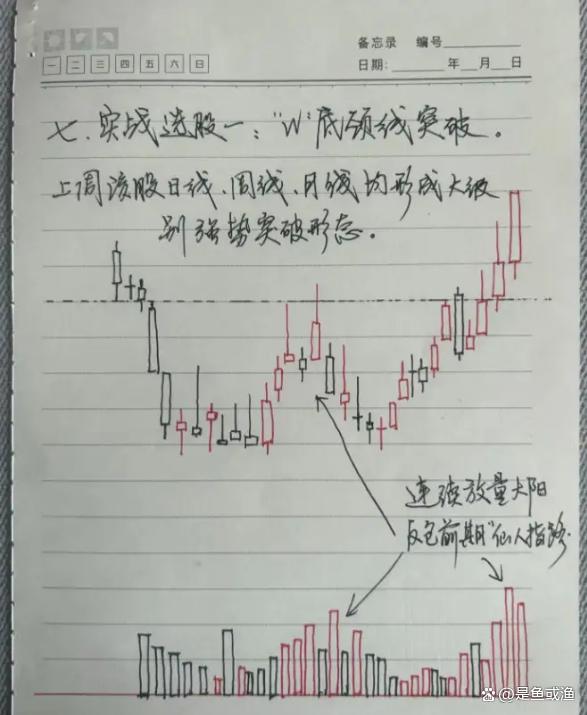 备忘录 编号
一 二 三 四 五 六 日
日期: 年 月 日
七、实战选股一："W"底颈线突破。
上周该股日线、周线、月线均形成大级
别强势突破形态。
连续放量大阳
反包前期"仙人指路"
@是鱼或渔